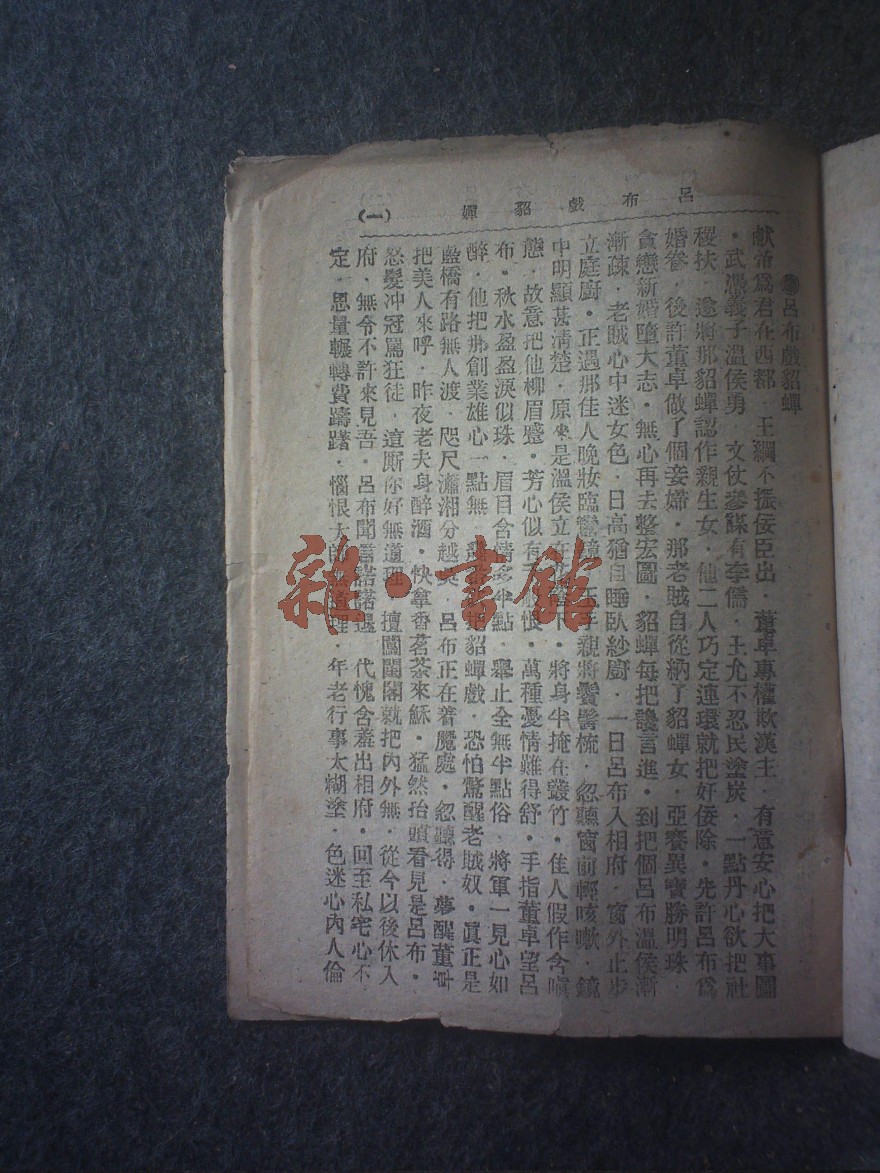 呂布戲貂嬋 (一)
呂布戲貂蟬
献帝爲君在西都．王綱不振佞臣出．董卓專權欺漢主．有意安心把大事圖
．武憑義子溫侯勇．文仗參謀有李儒．王允不忍民塗炭．一點丹心欲把社
稷扶．遂將那貂蟬認作親生女．他二人巧定連環就把奸佞除．先許呂布爲
婚眷．後許董卓做了個妾婦．那老賊自從納了貂蟬女．亞賽異寶勝明珠．
貪戀新婚墮大志．無心再去整宏圖．貂蟬每把讒言進．到把個呂布溫侯漸
漸疎．老賊心中迷女色．日高猶自睡臥紗廚．一日呂布入相府．窗外止步
立庭廚．正遇那佳人晚妝臨鸞鏡．親將鬢髻梳．忽聽窗前輕咳嗽．鏡
中明顯甚清楚．原來是溫侯立在下．將身半掩在叢竹．佳人假作含嗔
態．故意把他柳眉蹙．芳心似有恨．萬種憂情難得舒．手指董卓望呂
布．秋水盈盈淚似珠．眉目含情半點．舉止全無半點俗．將軍一見心如
醉．他把那創業雄心一點無．貂蟬戲．恐怕驚醒老賊奴．眞正是
藍橋有路無人渡．咫尺瀟湘分越．呂布正在着魔處．忽聽得．夢醒董
把美人來呼．昨夜老夫身醉酒．快拿香茗茶來穌．猛然抬頭看見是呂布．
怒髮冲冠罵狂徒．這厮你好無道理．擅闖閨閣就把內外無．從今以後休入
府．無令不許來見吾．呂布聞言諾諾退．代愧含羞出相府．回至私宅心不
定．思量輾轉費躊躇．惱恨太師無道理．年老行事太糊塗．色迷心內人倫
雜·書館